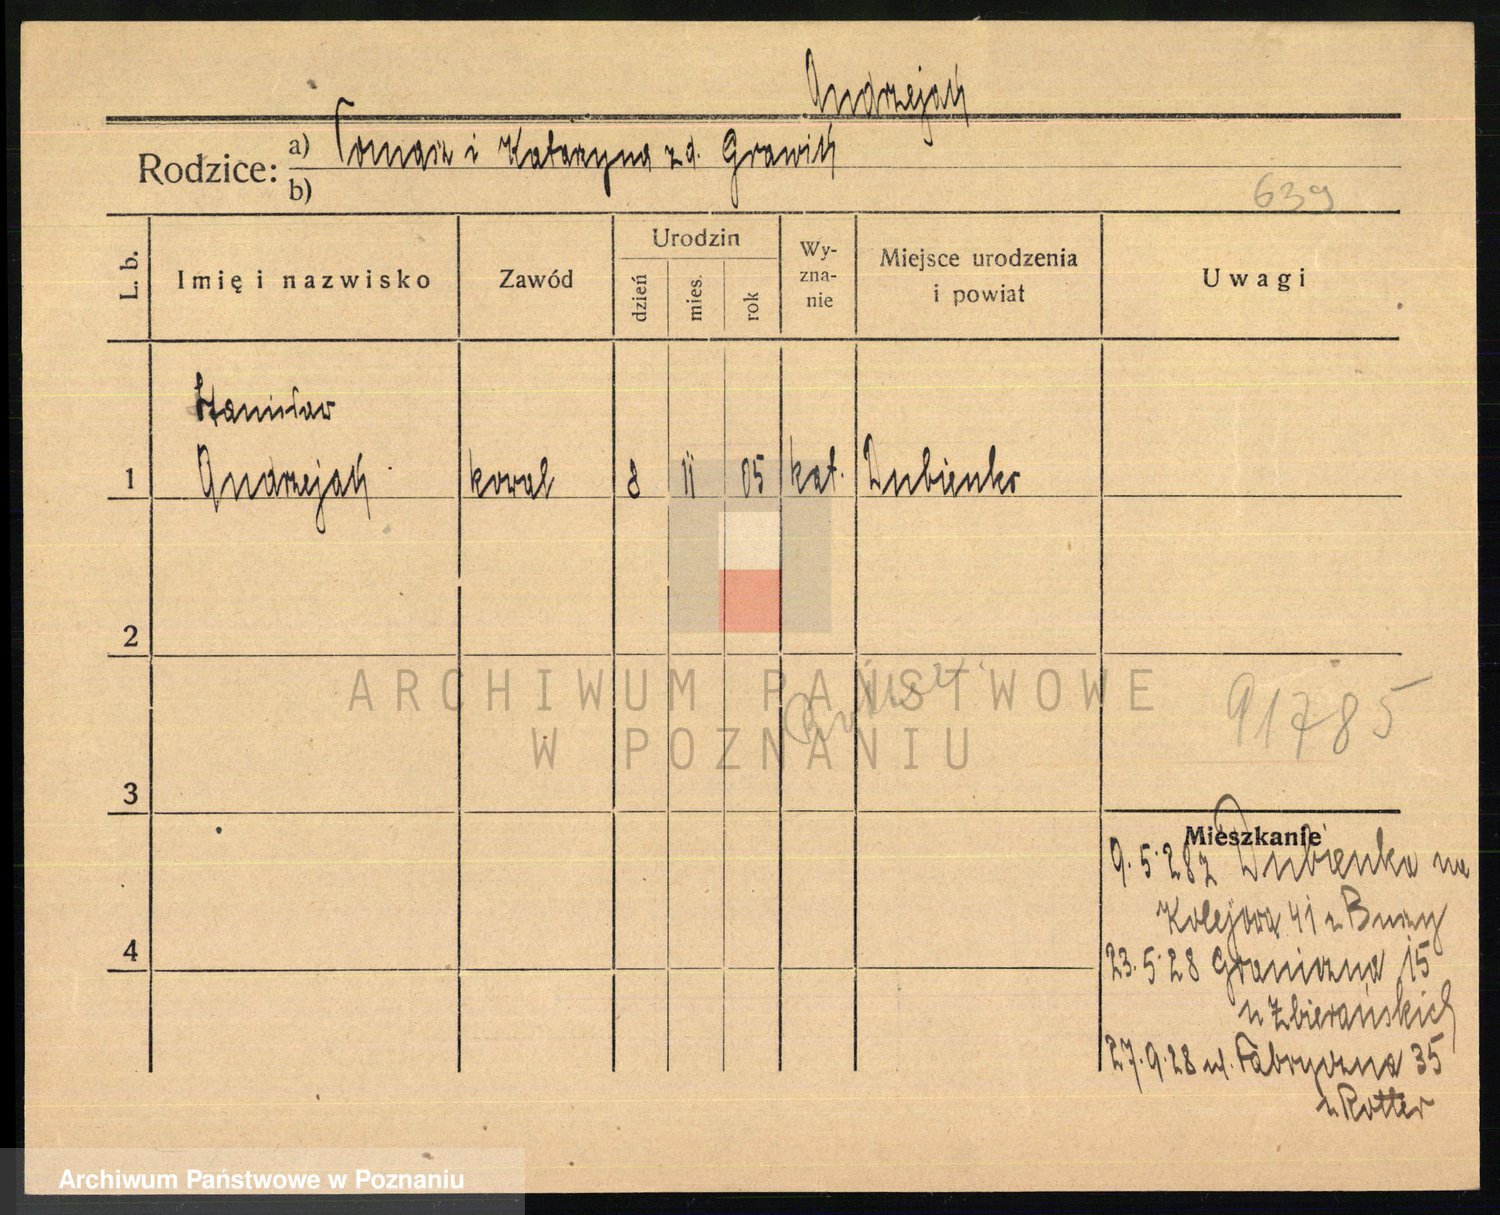 Andrzejak
Rodzice: a) Tomasz i Katarzyna zd.
b)
639
L. b.
Imię i nazwisko
Zawód
Urodzin
dzień
mies.
rok
Wy-
zna-
nie
Miejsce urodzenia
i powiat
Uwagi
Stanisław
1 Andrzejak kowal 8 11 05 kat. Dubienko
2
91785
3
Mieszkanie
9.5.28 z Dubienka na
Kolejową 41
4
23.5.28 Graniczna 15
u Zbierańskich
27.9.28 ul. Fabryczna 35
u Rotter
ARCHIWUM PAŃSTWOWE
W POZNANIU
Archiwum Państwowe w Poznaniu